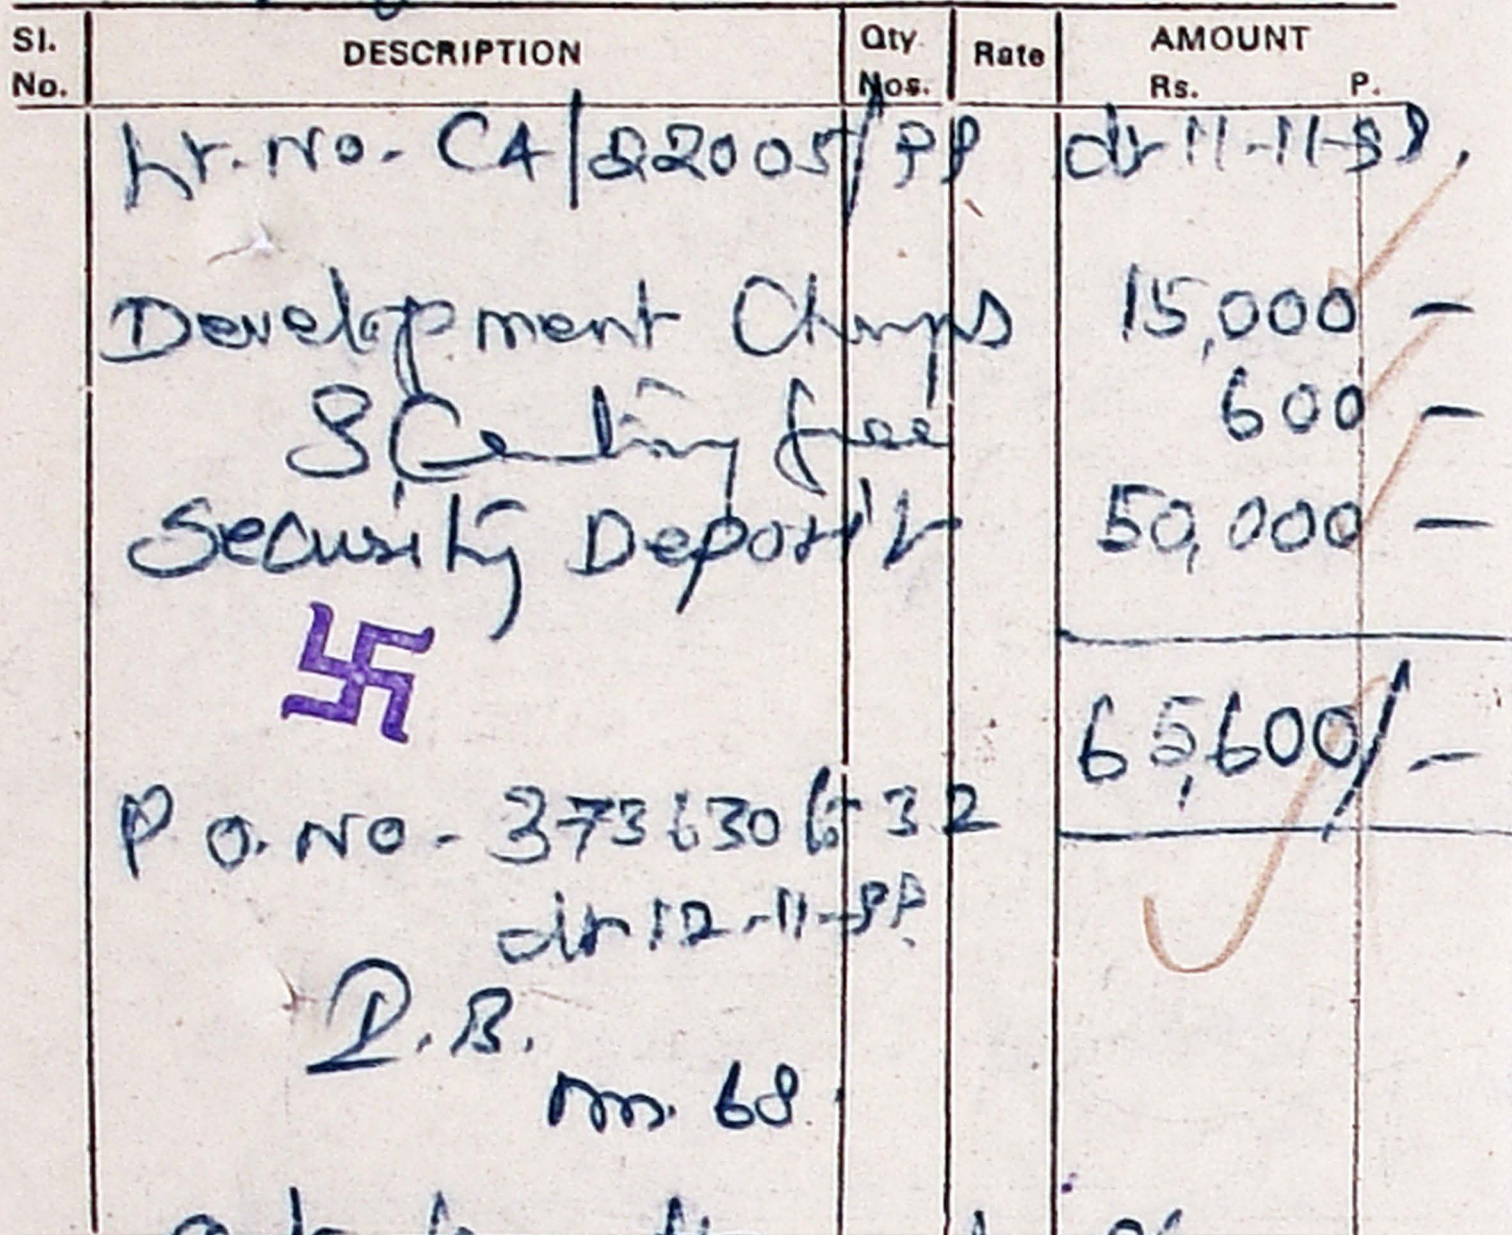 Sl. No. DESCRIPTION Qty. Nos. Rate AMOUNT Rs. P.
Lr. No. CA/22005/99 dt 11-11-99.
Development Charges 15,000 —
Scrutiny fee 600 —
Security Deposit 50,000 —
65,600/-
P.O. No - 373630 6532
dt 12-11-99.
D.B.
no. 68.